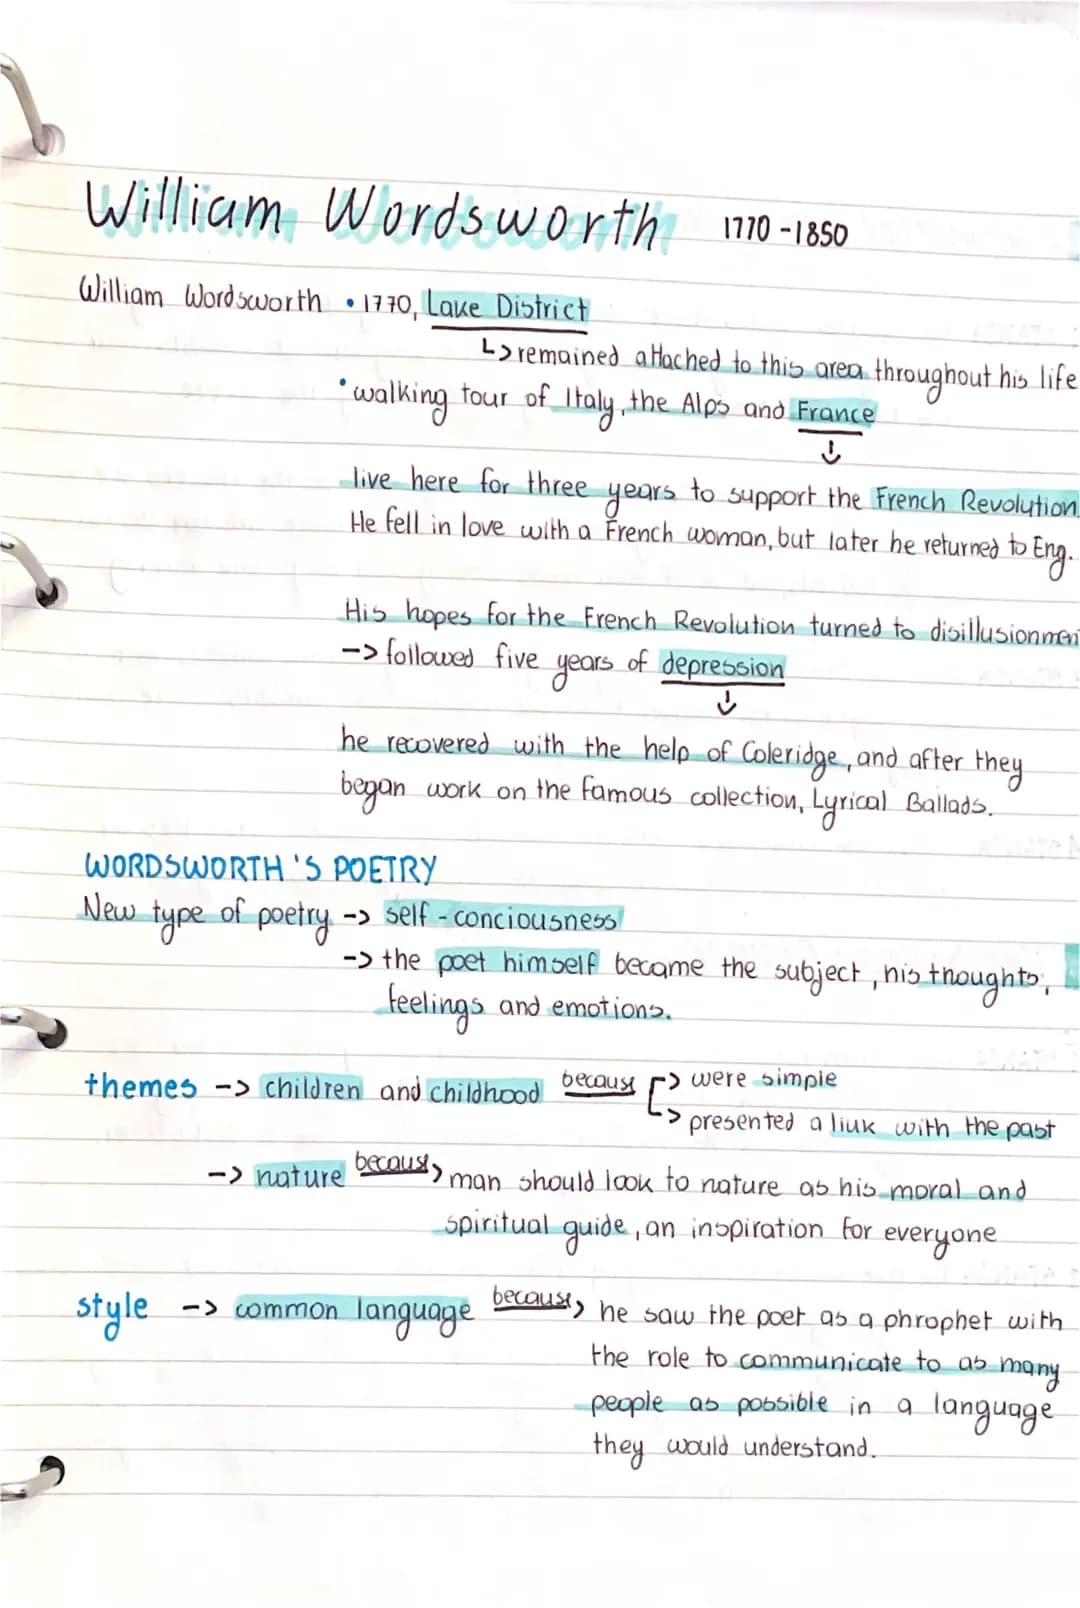 William Wordsworth 1770-1850
William Wordsworth • 1770, Lake District
↳ remained attached to this area throughout his life
• walking tour of Italy, the Alps and France
↓
live here for three years to support the French Revolution.
He fell in love with a French woman, but later he returned to Eng.
His hopes for the French Revolution turned to disillusionmen
-> followed five years of depression
↓
he recovered with the help of Coleridge, and after they
began work on the famous collection, Lyrical Ballads.
WORDSWORTH'S POETRY
New type of poetry -> self-conciousness
-> the poet himself became the subject, his thoughts,
feelings and emotions.
themes -> children and childhood because -> were simple
-> presented a link with the past
-> nature because> man should look to nature as his moral and
spiritual guide, an inspiration for everyone
style -> common language because> he saw the poet as a phrophet with
the role to communicate to as many
people as possible in a language
they would understand.